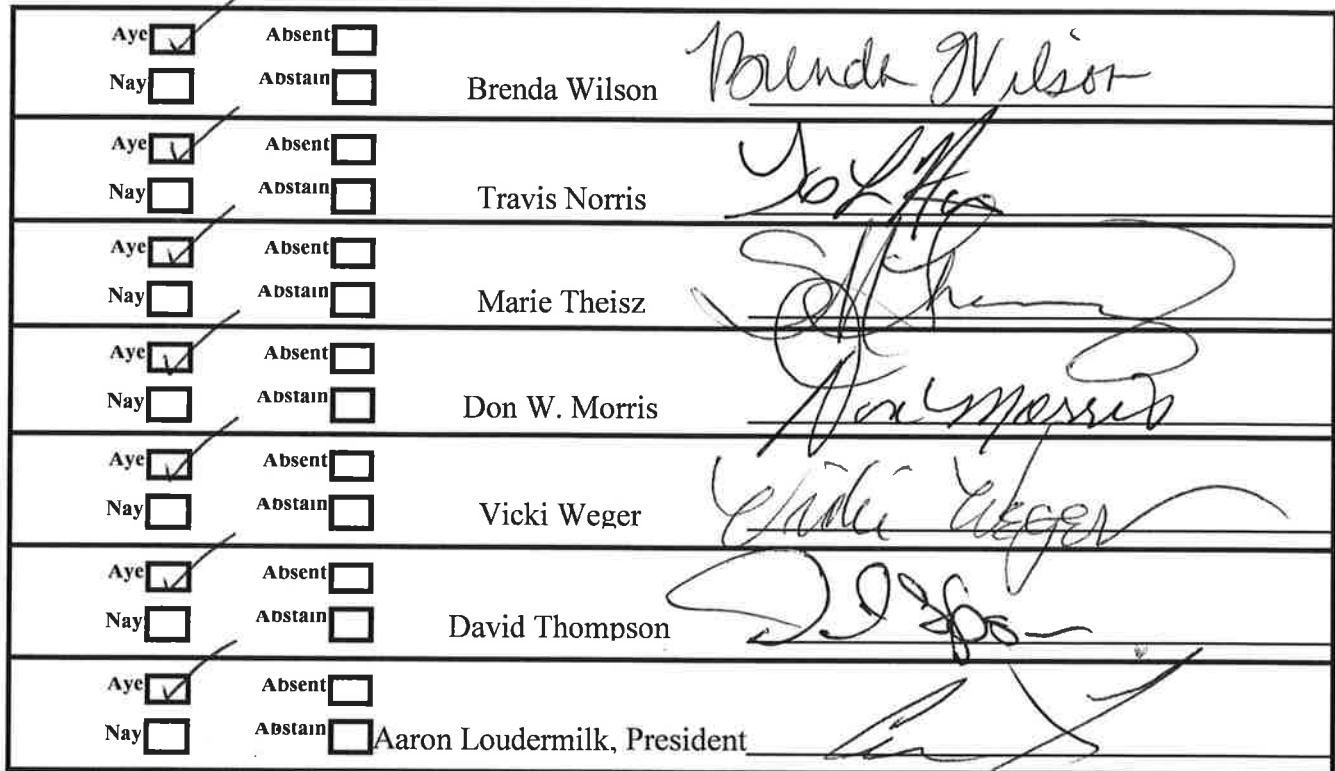 Aye Absent
Nay Abstain Brenda Wilson Brenda Wilson
Aye Absent
Nay Abstain Travis Norris
Aye Absent
Nay Abstain Marie Theisz
Aye Absent
Nay Abstain Don W. Morris Don W Morris
Aye Absent
Nay Abstain Vicki Weger Vicki Weger
Aye Absent
Nay Abstain David Thompson
Aye Absent
Nay Abstain Aaron Loudermilk, President